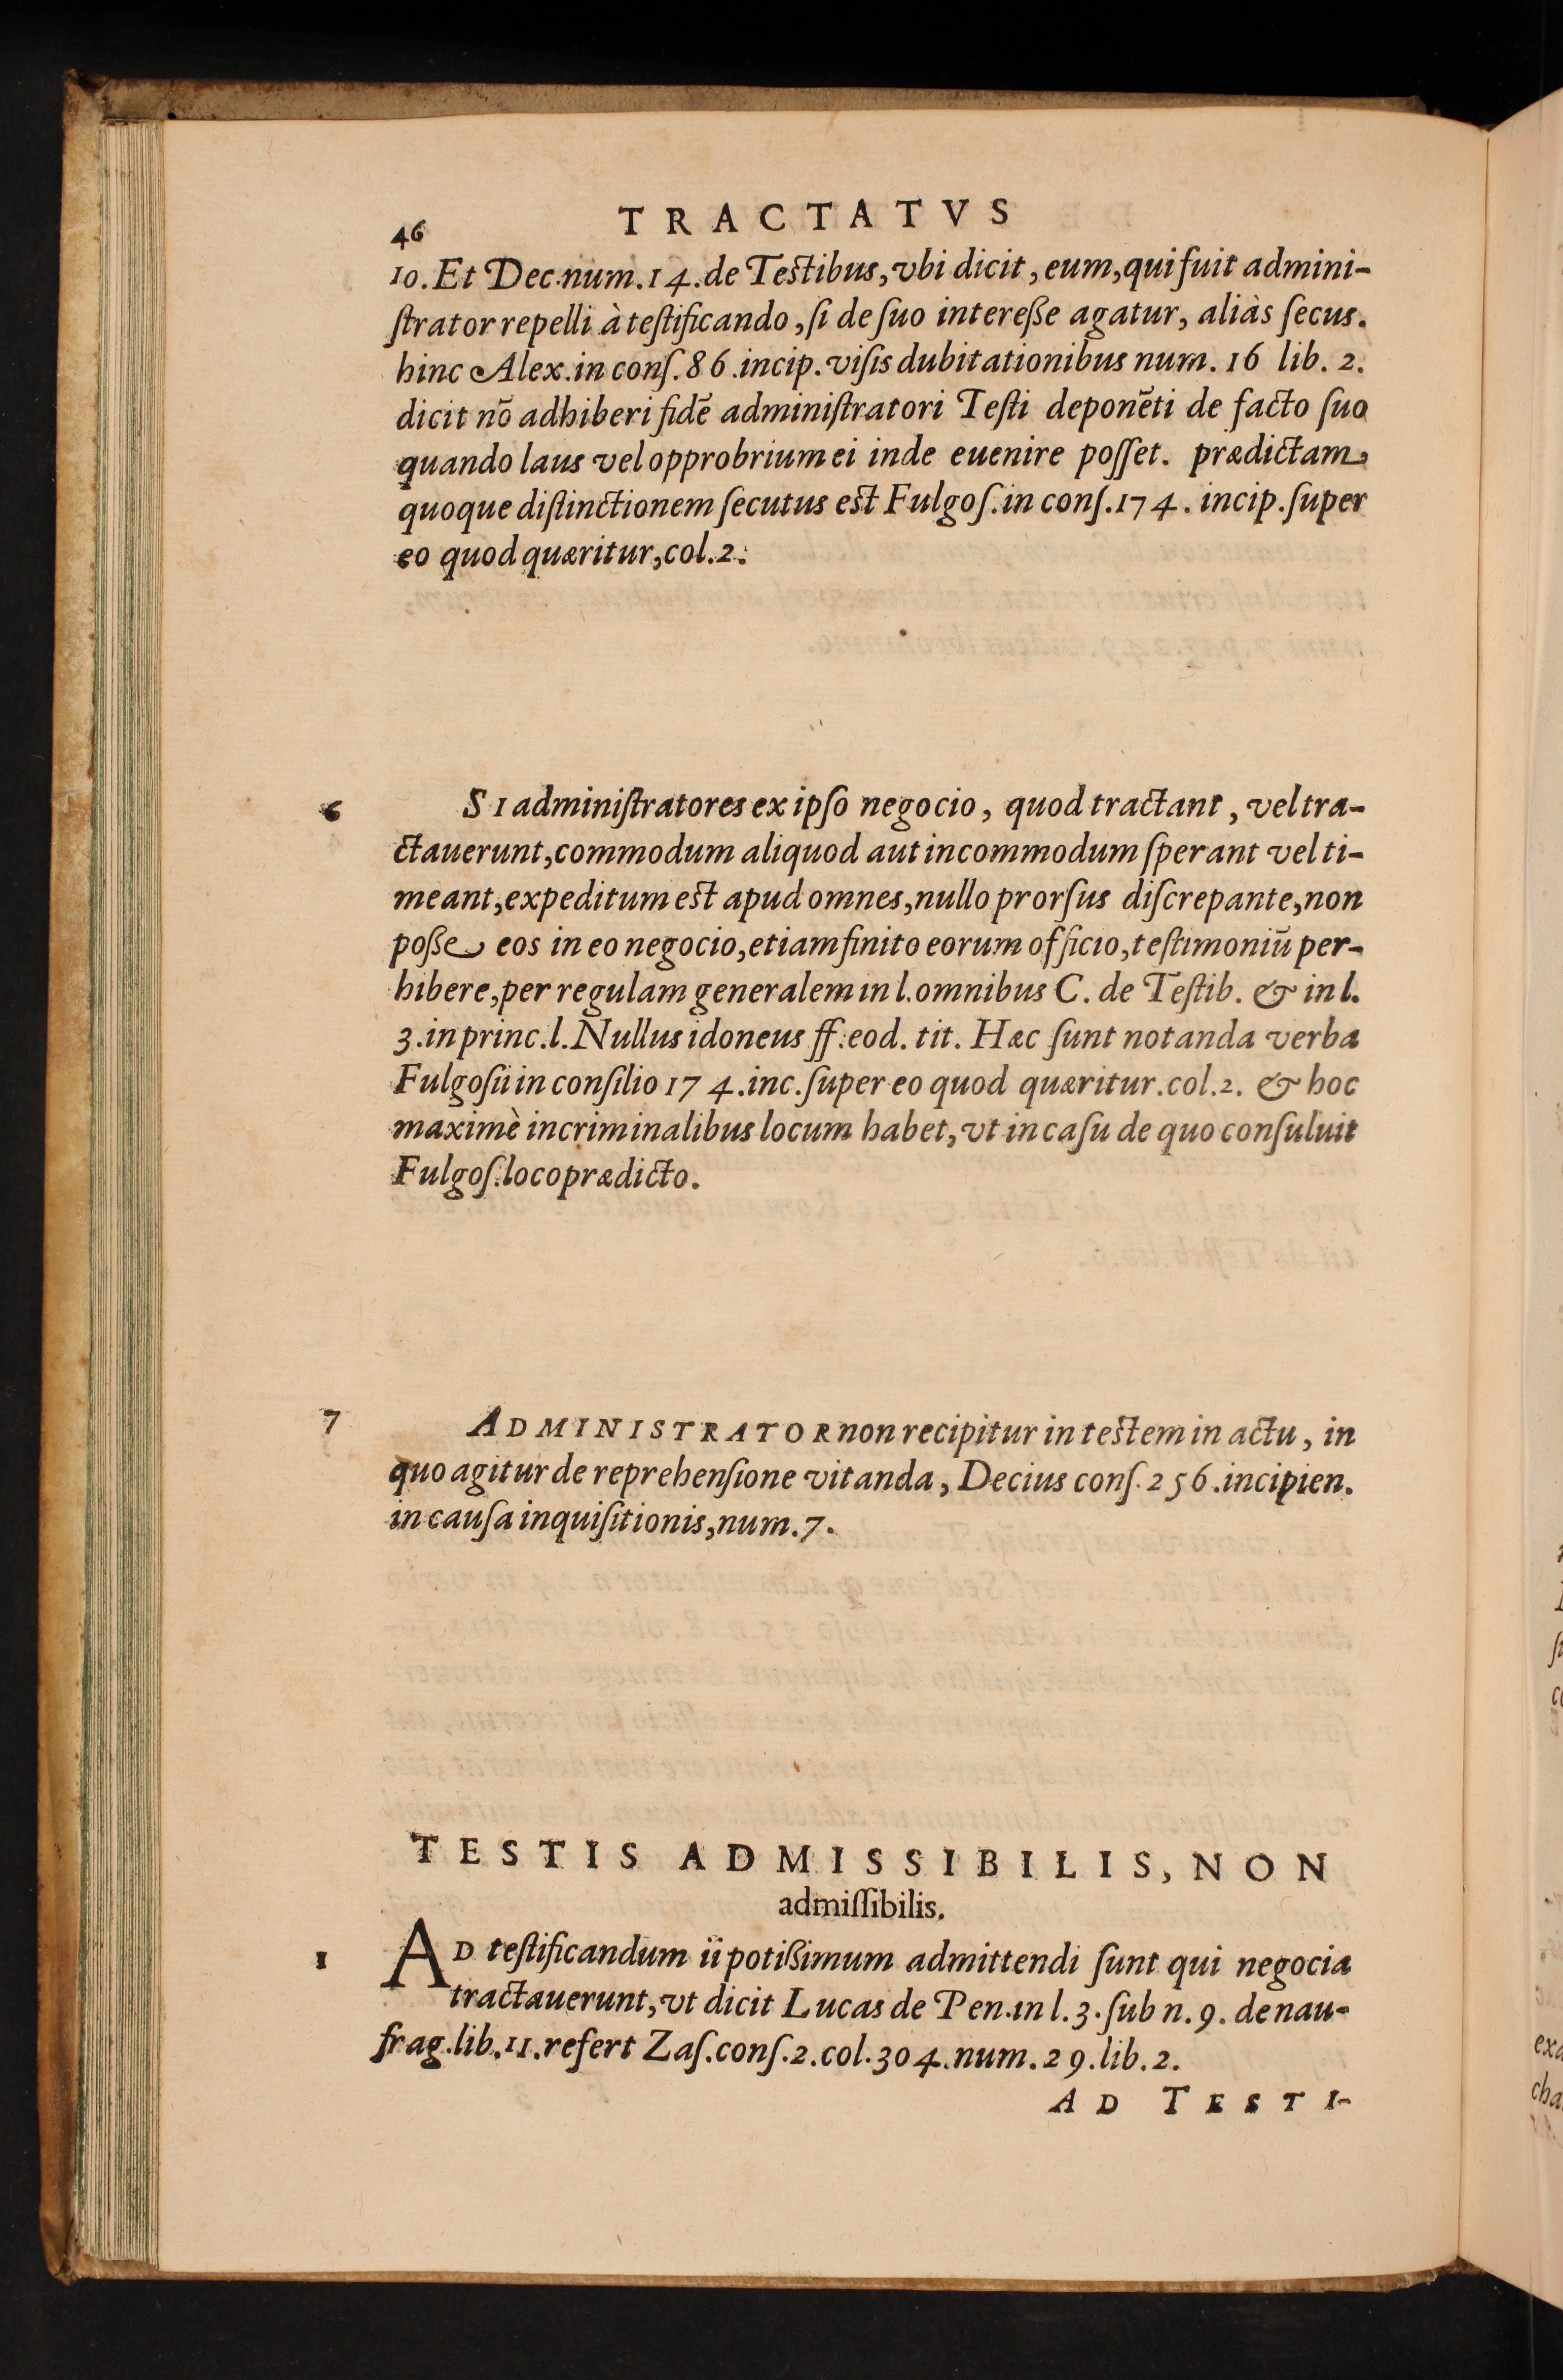 46
TRACTATVS
10. Et Dec. num. 14. de Testibus, vbi dicit, eum, qui fuit admini-
ſtrator repelli à teſtificando, ſi de ſuo intereße agatur, aliàs ſecus.
hinc Alex. in conſ. 86. incip. viſis dubitationibus num. 16 lib. 2.
dicit nō adhiberi fidē adminiſtratori Teſti deponēti de facto ſuo
quando laus vel opprobrium ei inde euenire poſſet. prædictam
quoque diſtinctionem ſecutus est Fulgoſ. in conſ. 174. incip. ſuper
eo quod quæritur, col. 2.
6
SI adminiſtratores ex ipſo negocio, quod tractant, vel tra-
ctauerunt, commodum aliquod aut incommodum ſperant vel ti-
meant, expeditum est apud omnes, nullo prorſus diſcrepante, non
poße eos in eo negocio, etiam finito eorum officio, teſtimoniū per-
hibere, per regulam generalem in l. omnibus C. de Teſtib. & in l.
3. in princ. l. Nullus idoneus ff. eod. tit. Hæc ſunt notanda verba
Fulgoſii in conſilio 174. inc. ſuper eo quod quæritur. col. 2. & hoc
maximè in criminalibus locum habet, vt in caſu de quo conſuluit
Fulgoſ. loco prædicto.
7
ADMINISTRATOR non recipitur in testem in actu, in
quo agitur de reprehenſione vitanda, Decius conſ. 256. incipien.
in cauſa inquiſitionis, num. 7.
TESTIS ADMISSIBILIS, NON
admiſſibilis.
1
AD teſtificandum ii potißimum admittendi ſunt qui negocia
tractauerunt, vt dicit Lucas de Pen. in l. 3. ſub n. 9. de nau-
frag. lib. 11. refert Zaſ. conſ. 2. col. 304. num. 29. lib. 2.
AD TESTI-